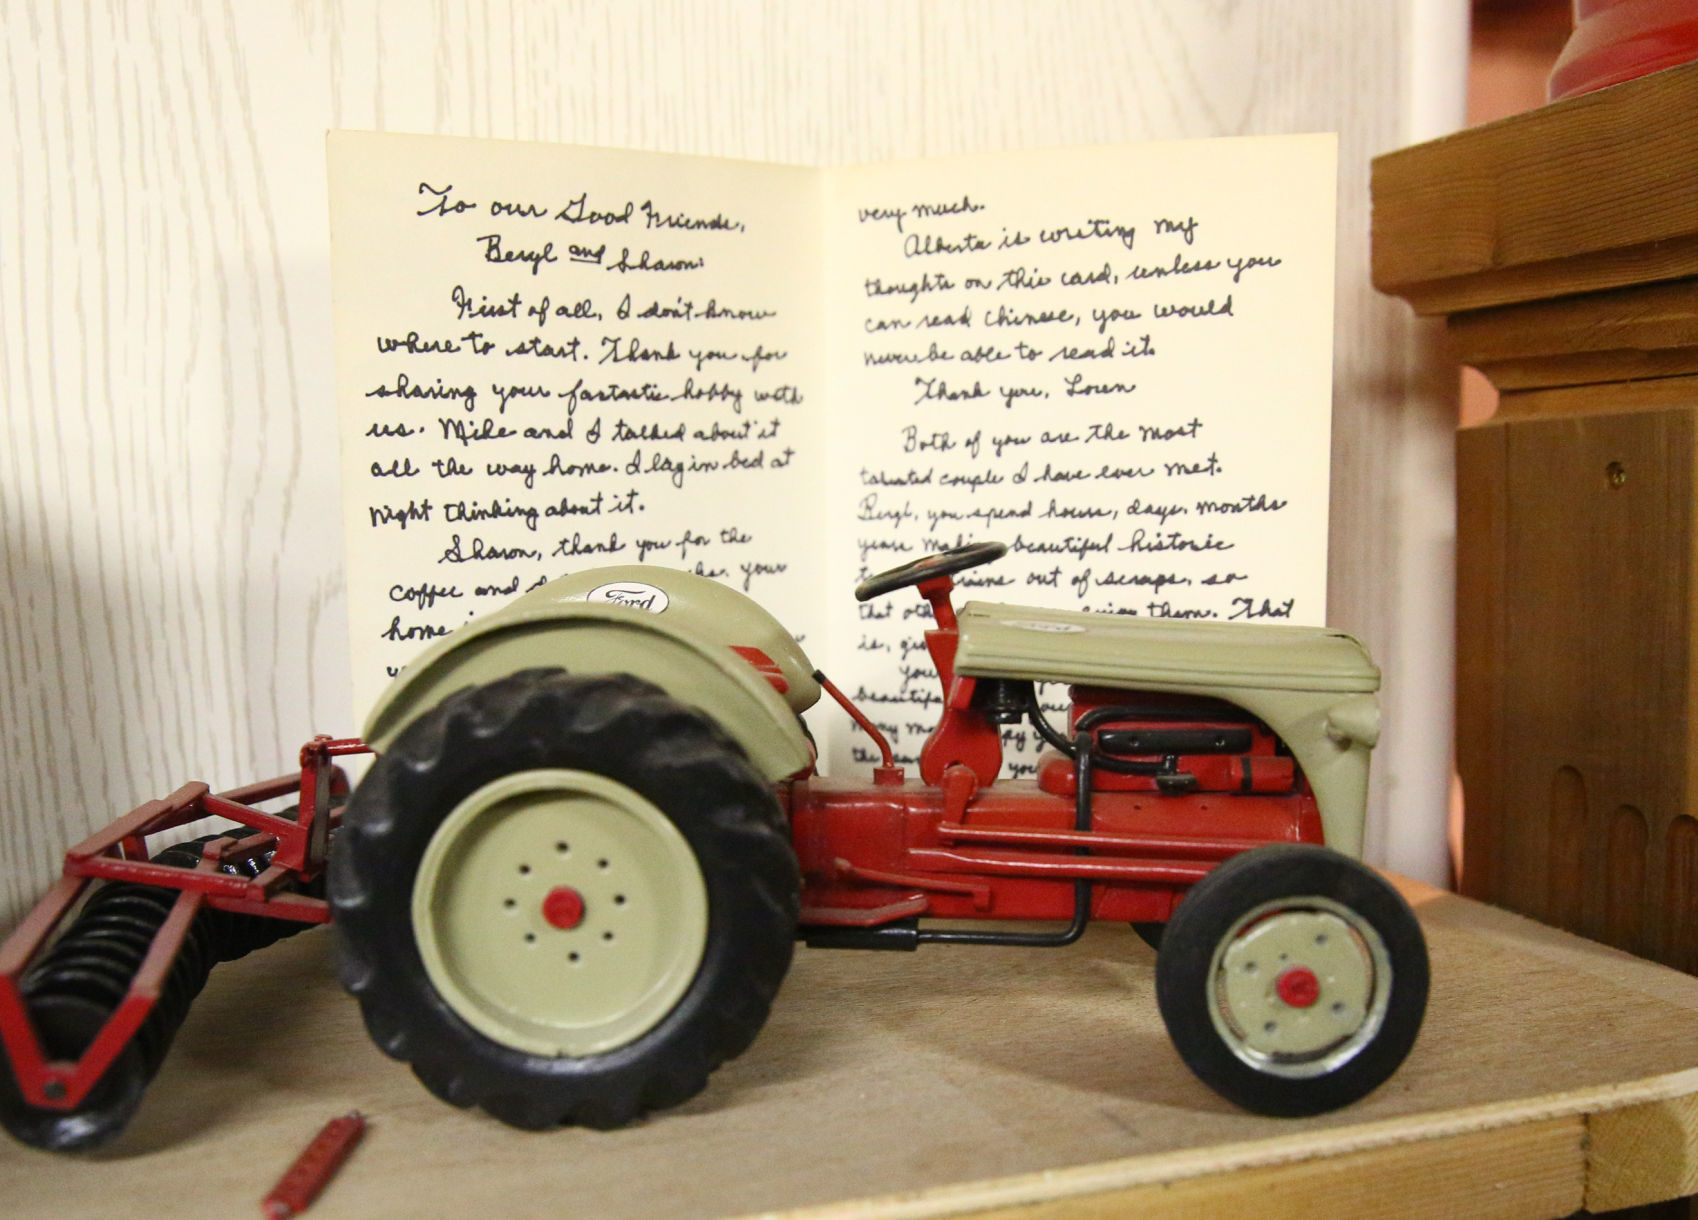 To our Good Friends,
Beryl and Sharon:
First of all, I don't know
where to start. Thank you for
sharing your fantastic hobby with
us. Mike and I talked about it
all the way home. I lay in bed at
night thinking about it.
Sharon, thank you for the
coffee and your
home
very much.
Alberta is writing my
thoughts on this card, unless you
can read Chinese, you would
never be able to read it.
Thank you, Loren
Both of you are the most
talented couple I have ever met.
Beryl, you spend hours, days, months
years beautiful historic
out of scraps, so
that them. That
is,
you
you
the you
Ford
Ford